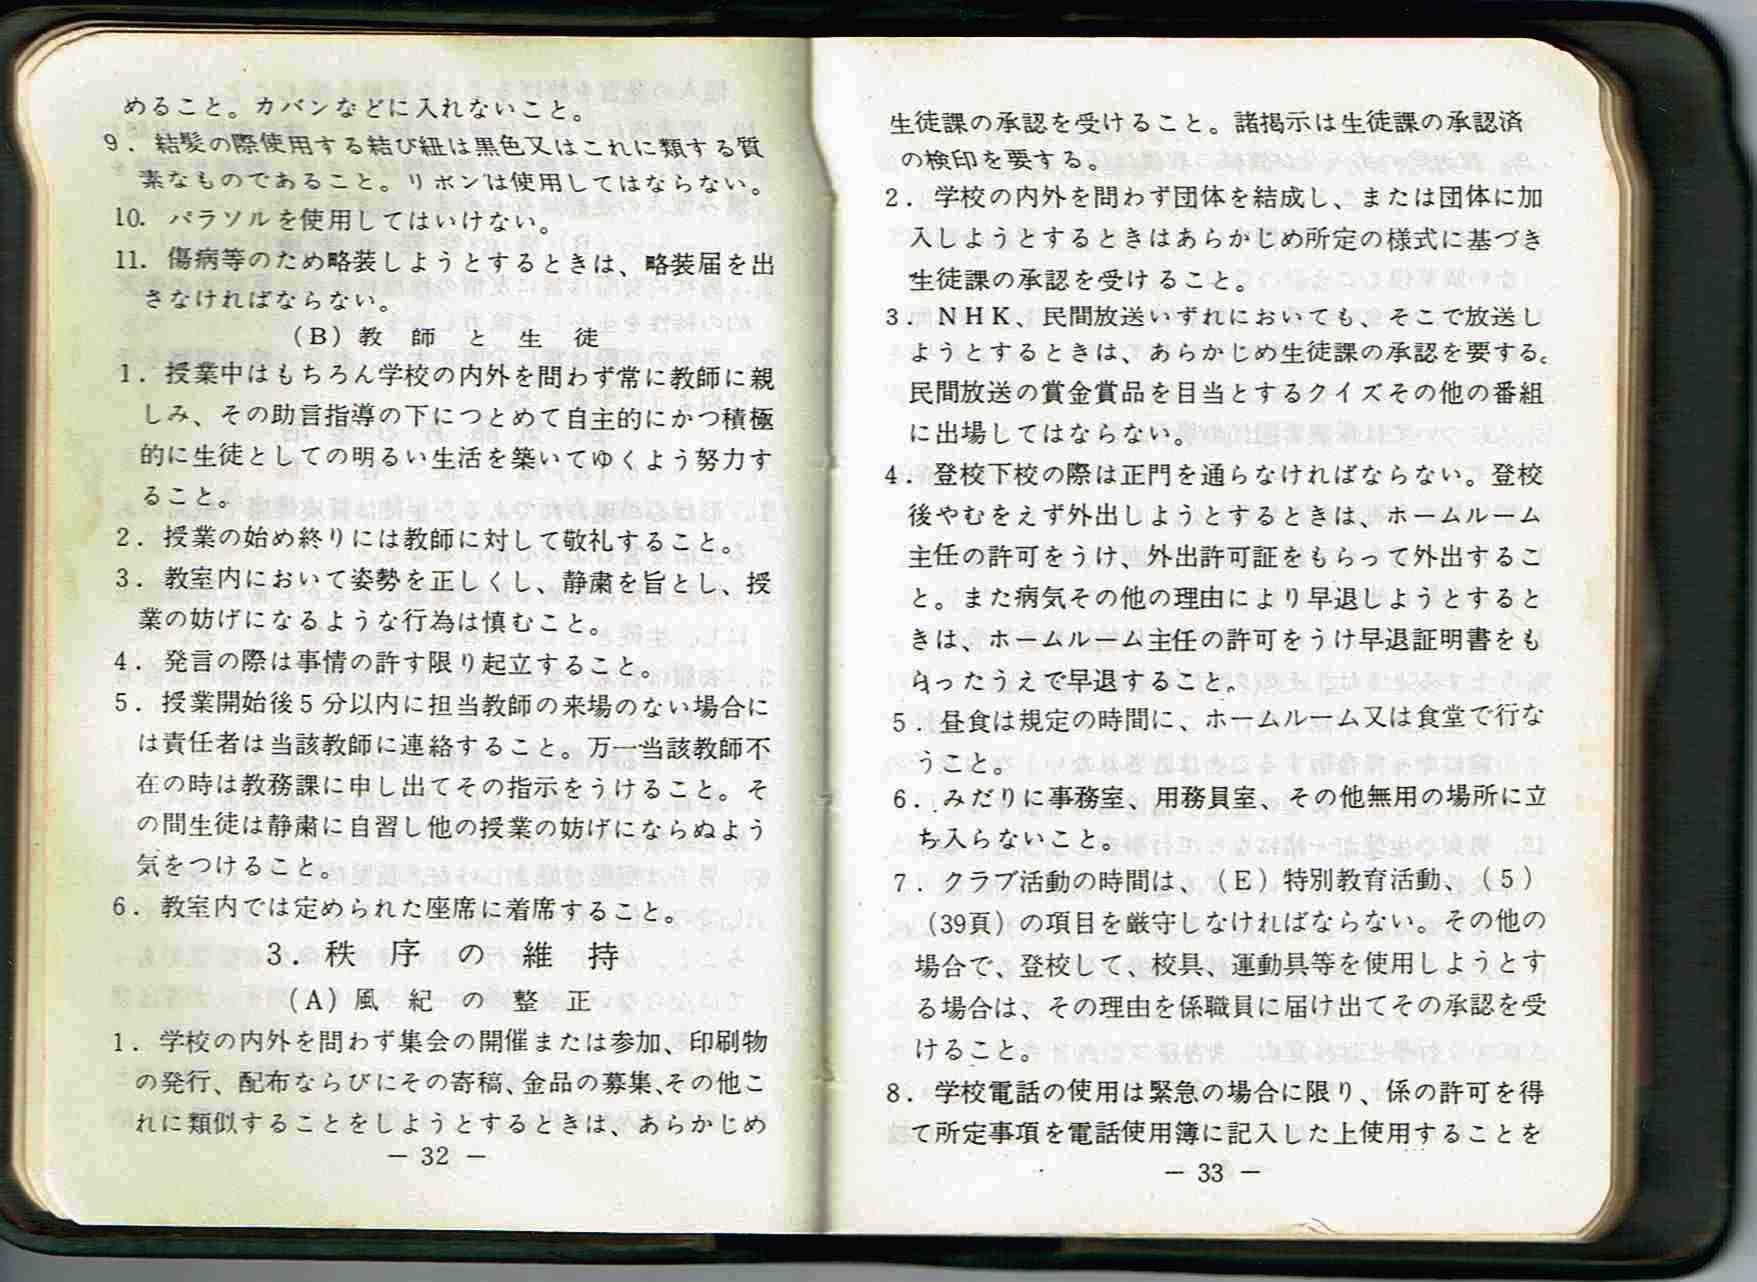 めること。カバンなどに入れないこと。
9．結髪の際使用する結び紐は黒色又はこれに類する質
素なものであること。リボンは使用してはならない。
10. パラソルを使用してはいけない。
11. 傷病等のため略装しようとするときは、略装届を出
さなければならない。
(B) 教師と生徒
1．授業中はもちろん学校の内外を問わず常に教師に親
しみ、その助言指導の下につとめて自主的にかつ積極
的に生徒としての明るい生活を築いてゆくよう努力す
ること。
2．授業の始め終りには教師に対して敬礼すること。
3．教室内において姿勢を正しくし、静粛を旨とし、授
業の妨げになるような行為は慎むこと。
4．発言の際は事情の許す限り起立すること。
5．授業開始後5分以内に担当教師の来場のない場合に
は責任者は当該教師に連絡すること。万一当該教師不
在の時は教務課に申し出てその指示をうけること。そ
の間生徒は静粛に自習し他の授業の妨げにならぬよう
気をつけること。
6．教室内では定められた座席に着席すること。
3．秩序の維持
(A) 風紀の整正
1．学校の内外を問わず集会の開催または参加、印刷物
の発行、配布ならびにその寄稿、金品の募集、その他こ
れに類似することをしようとするときは、あらかじめ
― 32 ―
生徒課の承認を受けること。諸掲示は生徒課の承認済
の検印を要する。
2．学校の内外を問わず団体を結成し、または団体に加
入しようとするときはあらかじめ所定の様式に基づき
生徒課の承認を受けること。
3．NHK、民間放送いずれにおいても、そこで放送し
ようとするときは、あらかじめ生徒課の承認を要する。
民間放送の賞金賞品を目当とするクイズその他の番組
に出場してはならない。
4．登校下校の際は正門を通らなければならない。登校
後やむをえず外出しようとするときは、ホームルーム
主任の許可をうけ、外出許可証をもらって外出するこ
と。また病気その他の理由により早退しようとすると
きは、ホームルーム主任の許可をうけ早退証明書をも
らったうえで早退すること。
5．昼食は規定の時間に、ホームルーム又は食堂で行な
うこと。
6．みだりに事務室、用務員室、その他無用の場所に立
ち入らないこと。
7．クラブ活動の時間は、(E) 特別教育活動、(5)
(39頁) の項目を厳守しなければならない。その他の
場合で、登校して、校具、運動具等を使用しようとす
る場合は、その理由を係職員に届け出てその承認を受
けること。
8．学校電話の使用は緊急の場合に限り、係の許可を得
て所定事項を電話使用簿に記入した上使用することを
― 33 ―